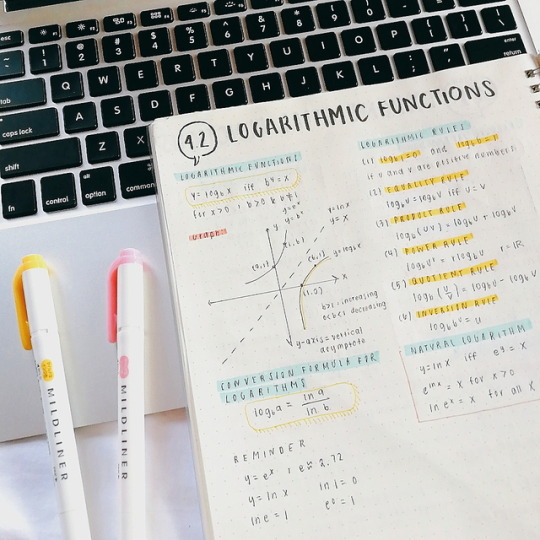 4.2 LOGARITHMIC FUNCTIONS
LOGARITHMIC FUNCTIONS
y = log_b x iff b^y = x
for x > 0, b > 0 & b ≠ 1
Graph
y
y = b^x
y = ln x
y = x
(1, b)
(0, 1)
(b, 1)
y = log_b x
x
(1, 0)
b > 1 = increasing
0<b<1 decreasing
y-axis = vertical
asymptote
CONVERSION FORMULA FOR
LOGARITHMS
log_b a = ln a / ln b
REMINDER
y = e^x ; e ≈ 2.72
y = ln x ln 1 = 0
ln e = 1 e^0 = 1
LOGARITHMIC RULES
(1) log_b 1 = 0 and log_b b = 1
if u and v are positive numbers:
(2) EQUALITY RULE
log_b u = log_b v iff u = v
(3) PRODUCT RULE
log_b (uv) = log_b u + log_b v
(4) POWER RULE
log_b u^r = r log_b u r = IR
(5) QUOTIENT RULE
log_b (u/v) = log_b u - log_b v
(6) INVERSION RULE
log_b b^u = u
NATURAL LOGARITHM
y = ln x iff e^y = x
e^ln x = x for x > 0
ln e^x = x for all x
MILDLINER
MILDLINER
esc F1 F2 F3
~ ! @ # $ % ^ & * ( )
1 2 3 4 5 6 7 8 9 0
tab Q W E R T Y U I O P
caps lock A S D F G H J K L
enter
return
shift Z X C
fn control alt option command